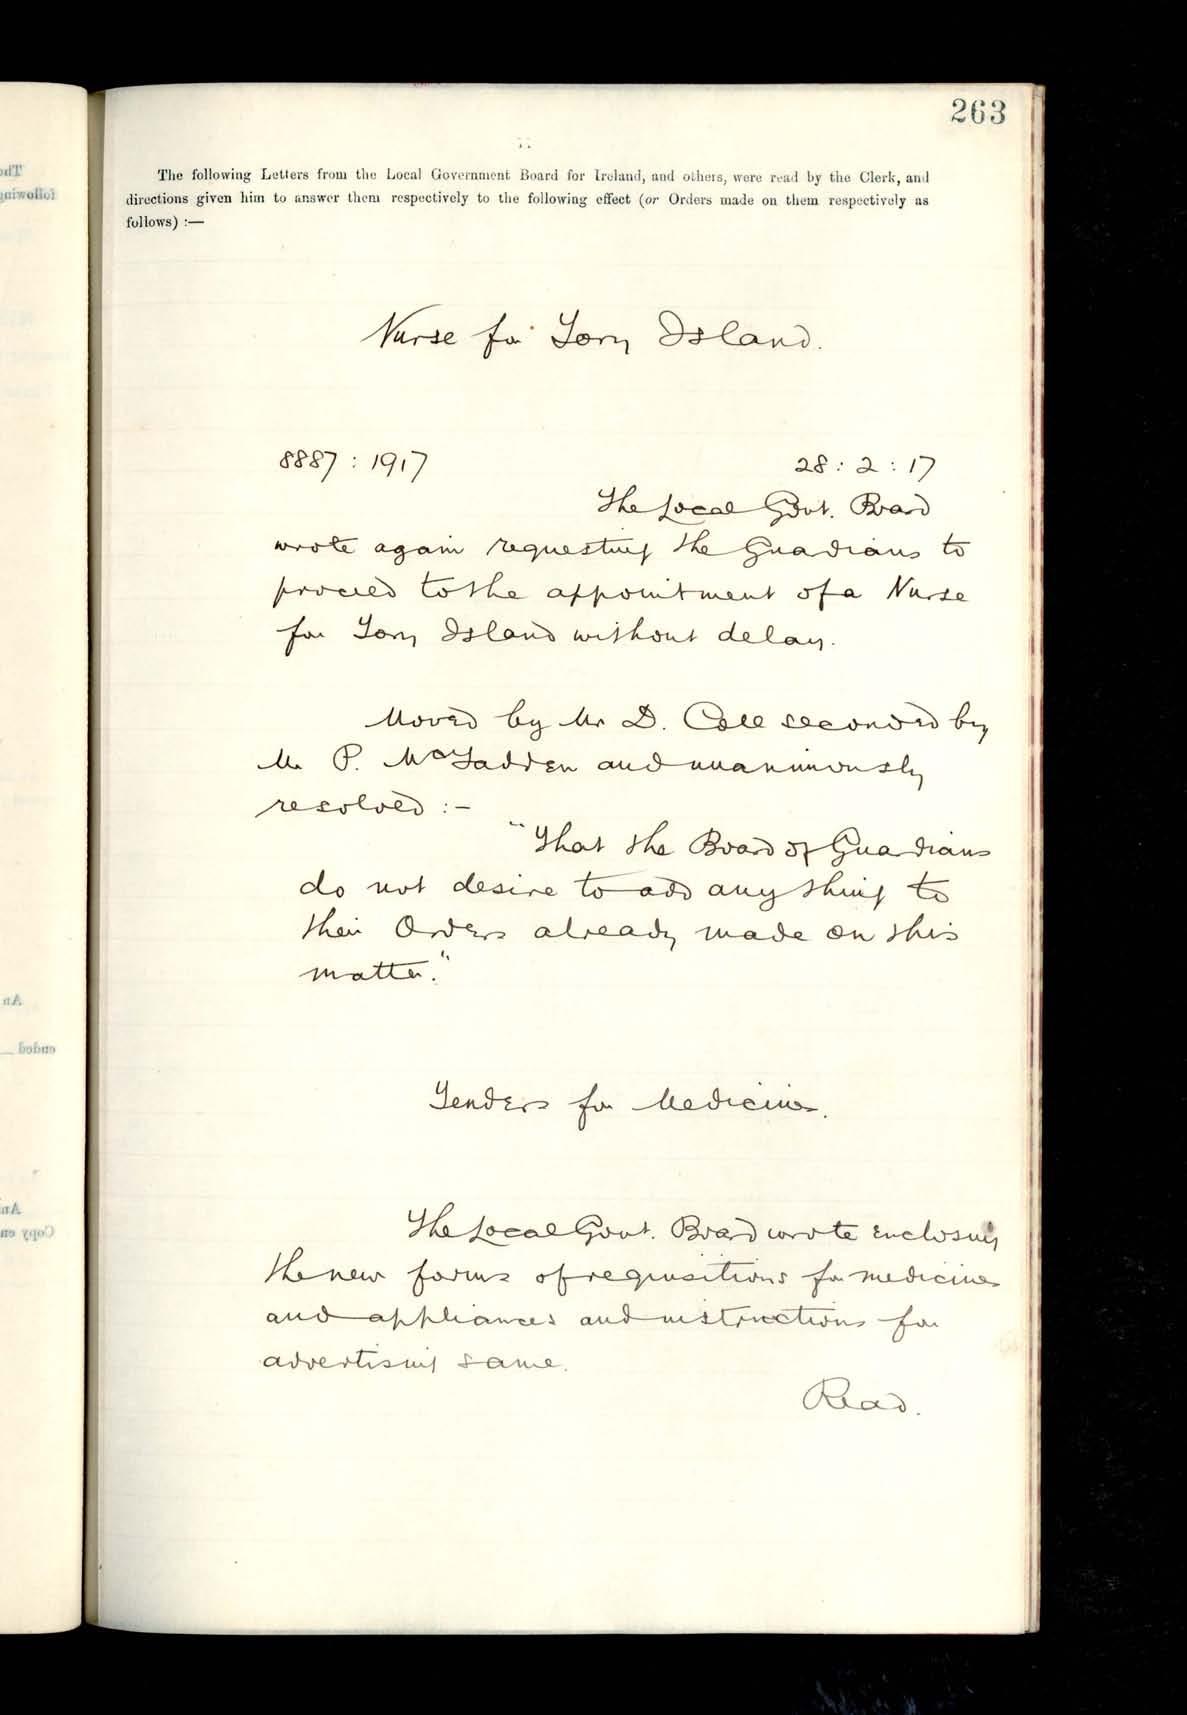 263
The following Letters from the Local Government Board for Ireland, and others, were read by the Clerk, and
directions given him to answer them respectively to the following effect (or Orders made on them respectively as
follows) :—
Nurse for Tory Island.
8887 : 1917 28 : 2 : 17
The Local Govt. Board
wrote again requesting the Guardians to
proceed to the appointment of a Nurse
for Tory Island without delay.
Moved by Mr D. Coll seconded by
Mr P. McFadden and unanimously
resolved :-
"That the Board of Guardians
do not desire to add anything to
their Orders already made on this
matter."
Tenders for Medicines.
The Local Govt. Board wrote enclosing
the new forms of requisitions for medicines
and appliances and instructions for
advertising same.
Read.